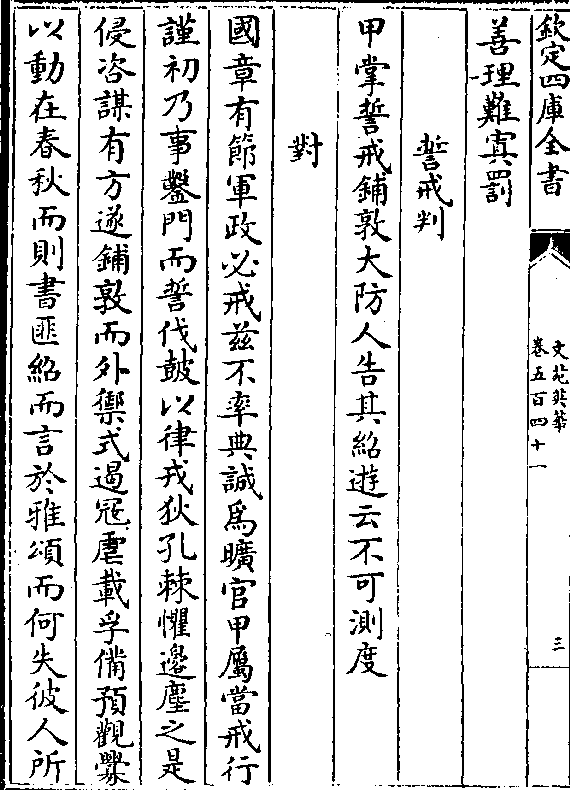 欽定四庫全書
文苑英華
卷五百四十一
三
善理難寘罰
誓戒判
甲掌誓戒鋪敦大防人告其紹遊云不可測度
對
國章有節軍政必戒兹不率典誠為曠官甲屬當戒行
謹初乃事鑿門而誓伐鼓以律戎狄孔棘懼邊塵之是
侵咨謀有方遂鋪敦而外禦式遏冦虐載孚備預觀釁
以動在春秋而則書匪紹而言於雅頌而何失彼人所